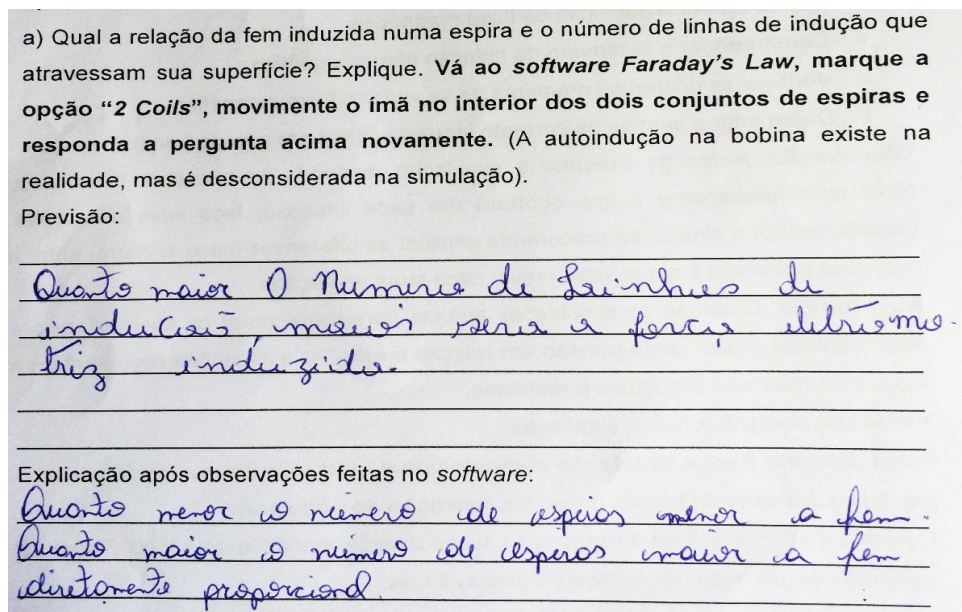 a) Qual a relação da fem induzida numa espira e o número de linhas de indução que
atravessam sua superfície? Explique. Vá ao software Faraday's Law, marque a
opção “2 Coils”, movimente o ímã no interior dos dois conjuntos de espiras e
responda a pergunta acima novamente. (A autoindução na bobina existe na
realidade, mas é desconsiderada na simulação).
Previsão:
Quanto maior O Numero de Leinhas de
induçaõ maior sera a força
triz induzida.
Explicação após observações feitas no software:
Quanto menor o número de espiras menor a fem.
Quanto maior o número de espiras maior a fem
diretamente proporcional.